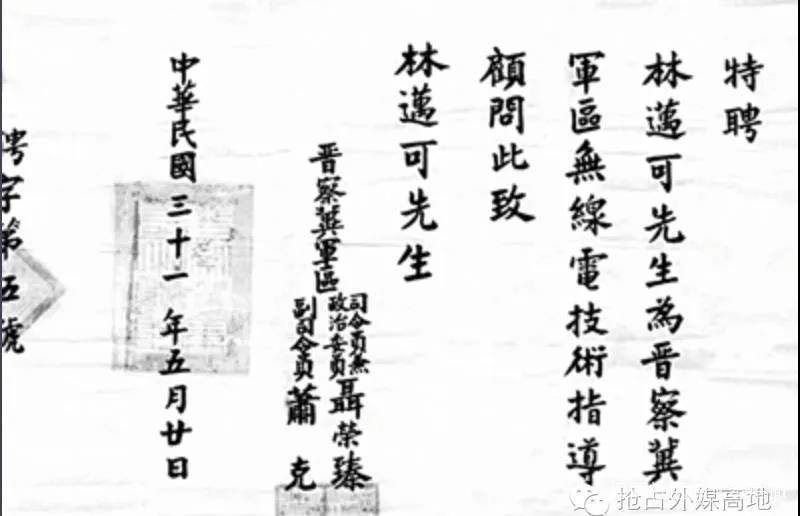 特聘
林邁可先生為晋察冀
軍區無線電技術指導
顧問此致
林邁可先生
晋察冀軍區
司令員兼
政治委員聶榮臻
副司令員蕭克
中華民國三十一年五月廿日
聘字第五號
抢占外媒高地